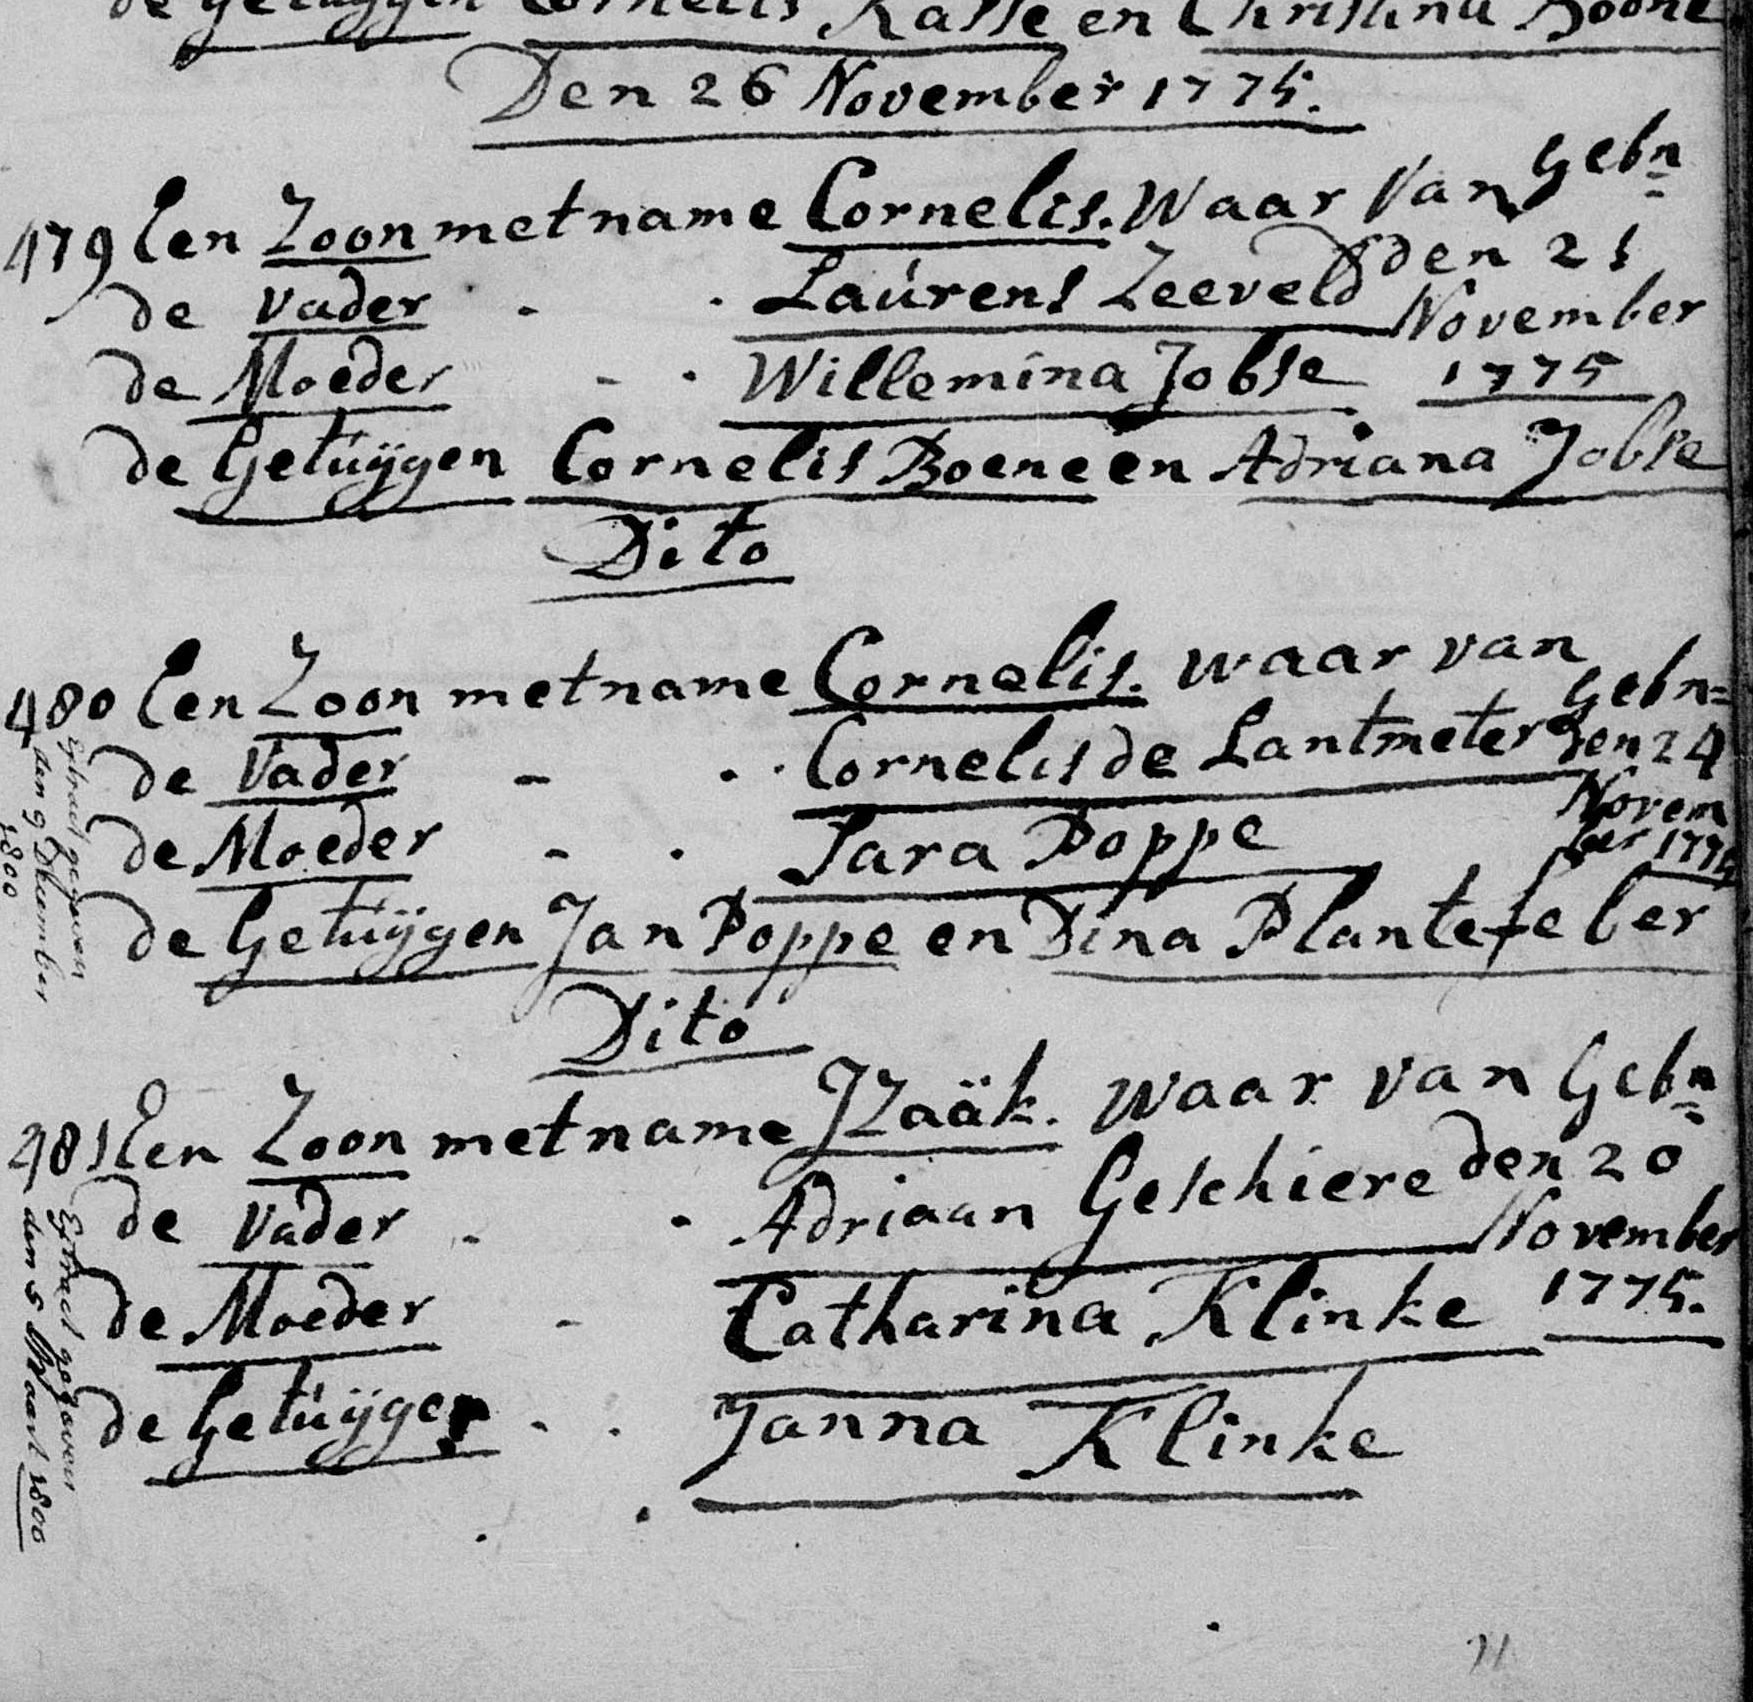 de Getuÿgen Cornelis Kasse en Christina Boone
Den 26 November 1775.
479 Een Zoon met name Cornelis. Waar Van Gebn
de Vader - . Laúrens Zeeveld den 21
November
de Moeder - . Willemina Jobse 1775
de Getúÿgen Cornelis Boene en Adriana Jobse
Dito
480 Een Zoon met name Cornelis. waar van
Gebn=
de Vader - . . Cornelis de Lantmeter den 24
Novem
de Moeder - . Sara Poppe ber 1775
de Getúÿgen Jan Poppe en Dina Plantefeber
Dito
481 Een Zoon met name IZaäk. waar van Gebn
de Vader - . Adriaan Geschiere den 20
November
de Moeder - Catharina Klinke 1775.
de Getúÿgen - . Janna Klinke
Extract gegeven
den 9 December
1800
Extract gegeven
den 5 Maart 1800